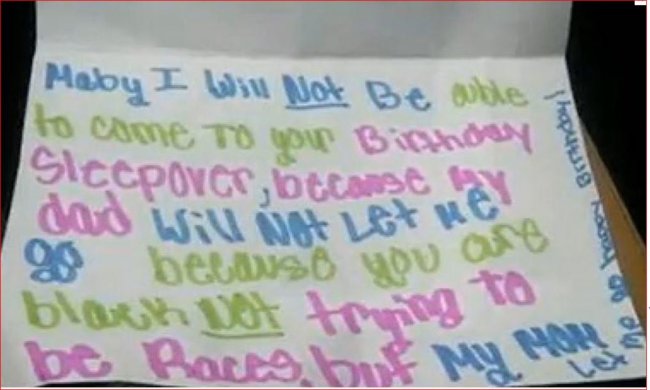 Maby I Will Not Be able
to come To your Birthday
Sleepover, because My
dad Will Not Let Me
go because you are
black Not trying to
be Races, but My MOM
Let Me go
Birthday